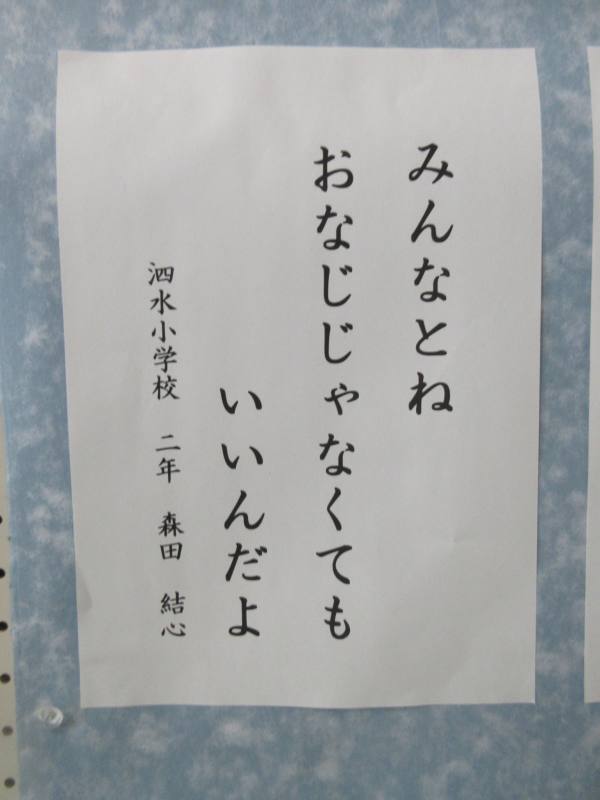 みんなとね
おなじじゃなくても
いいんだよ
泗水小学校 二年 森田 結心